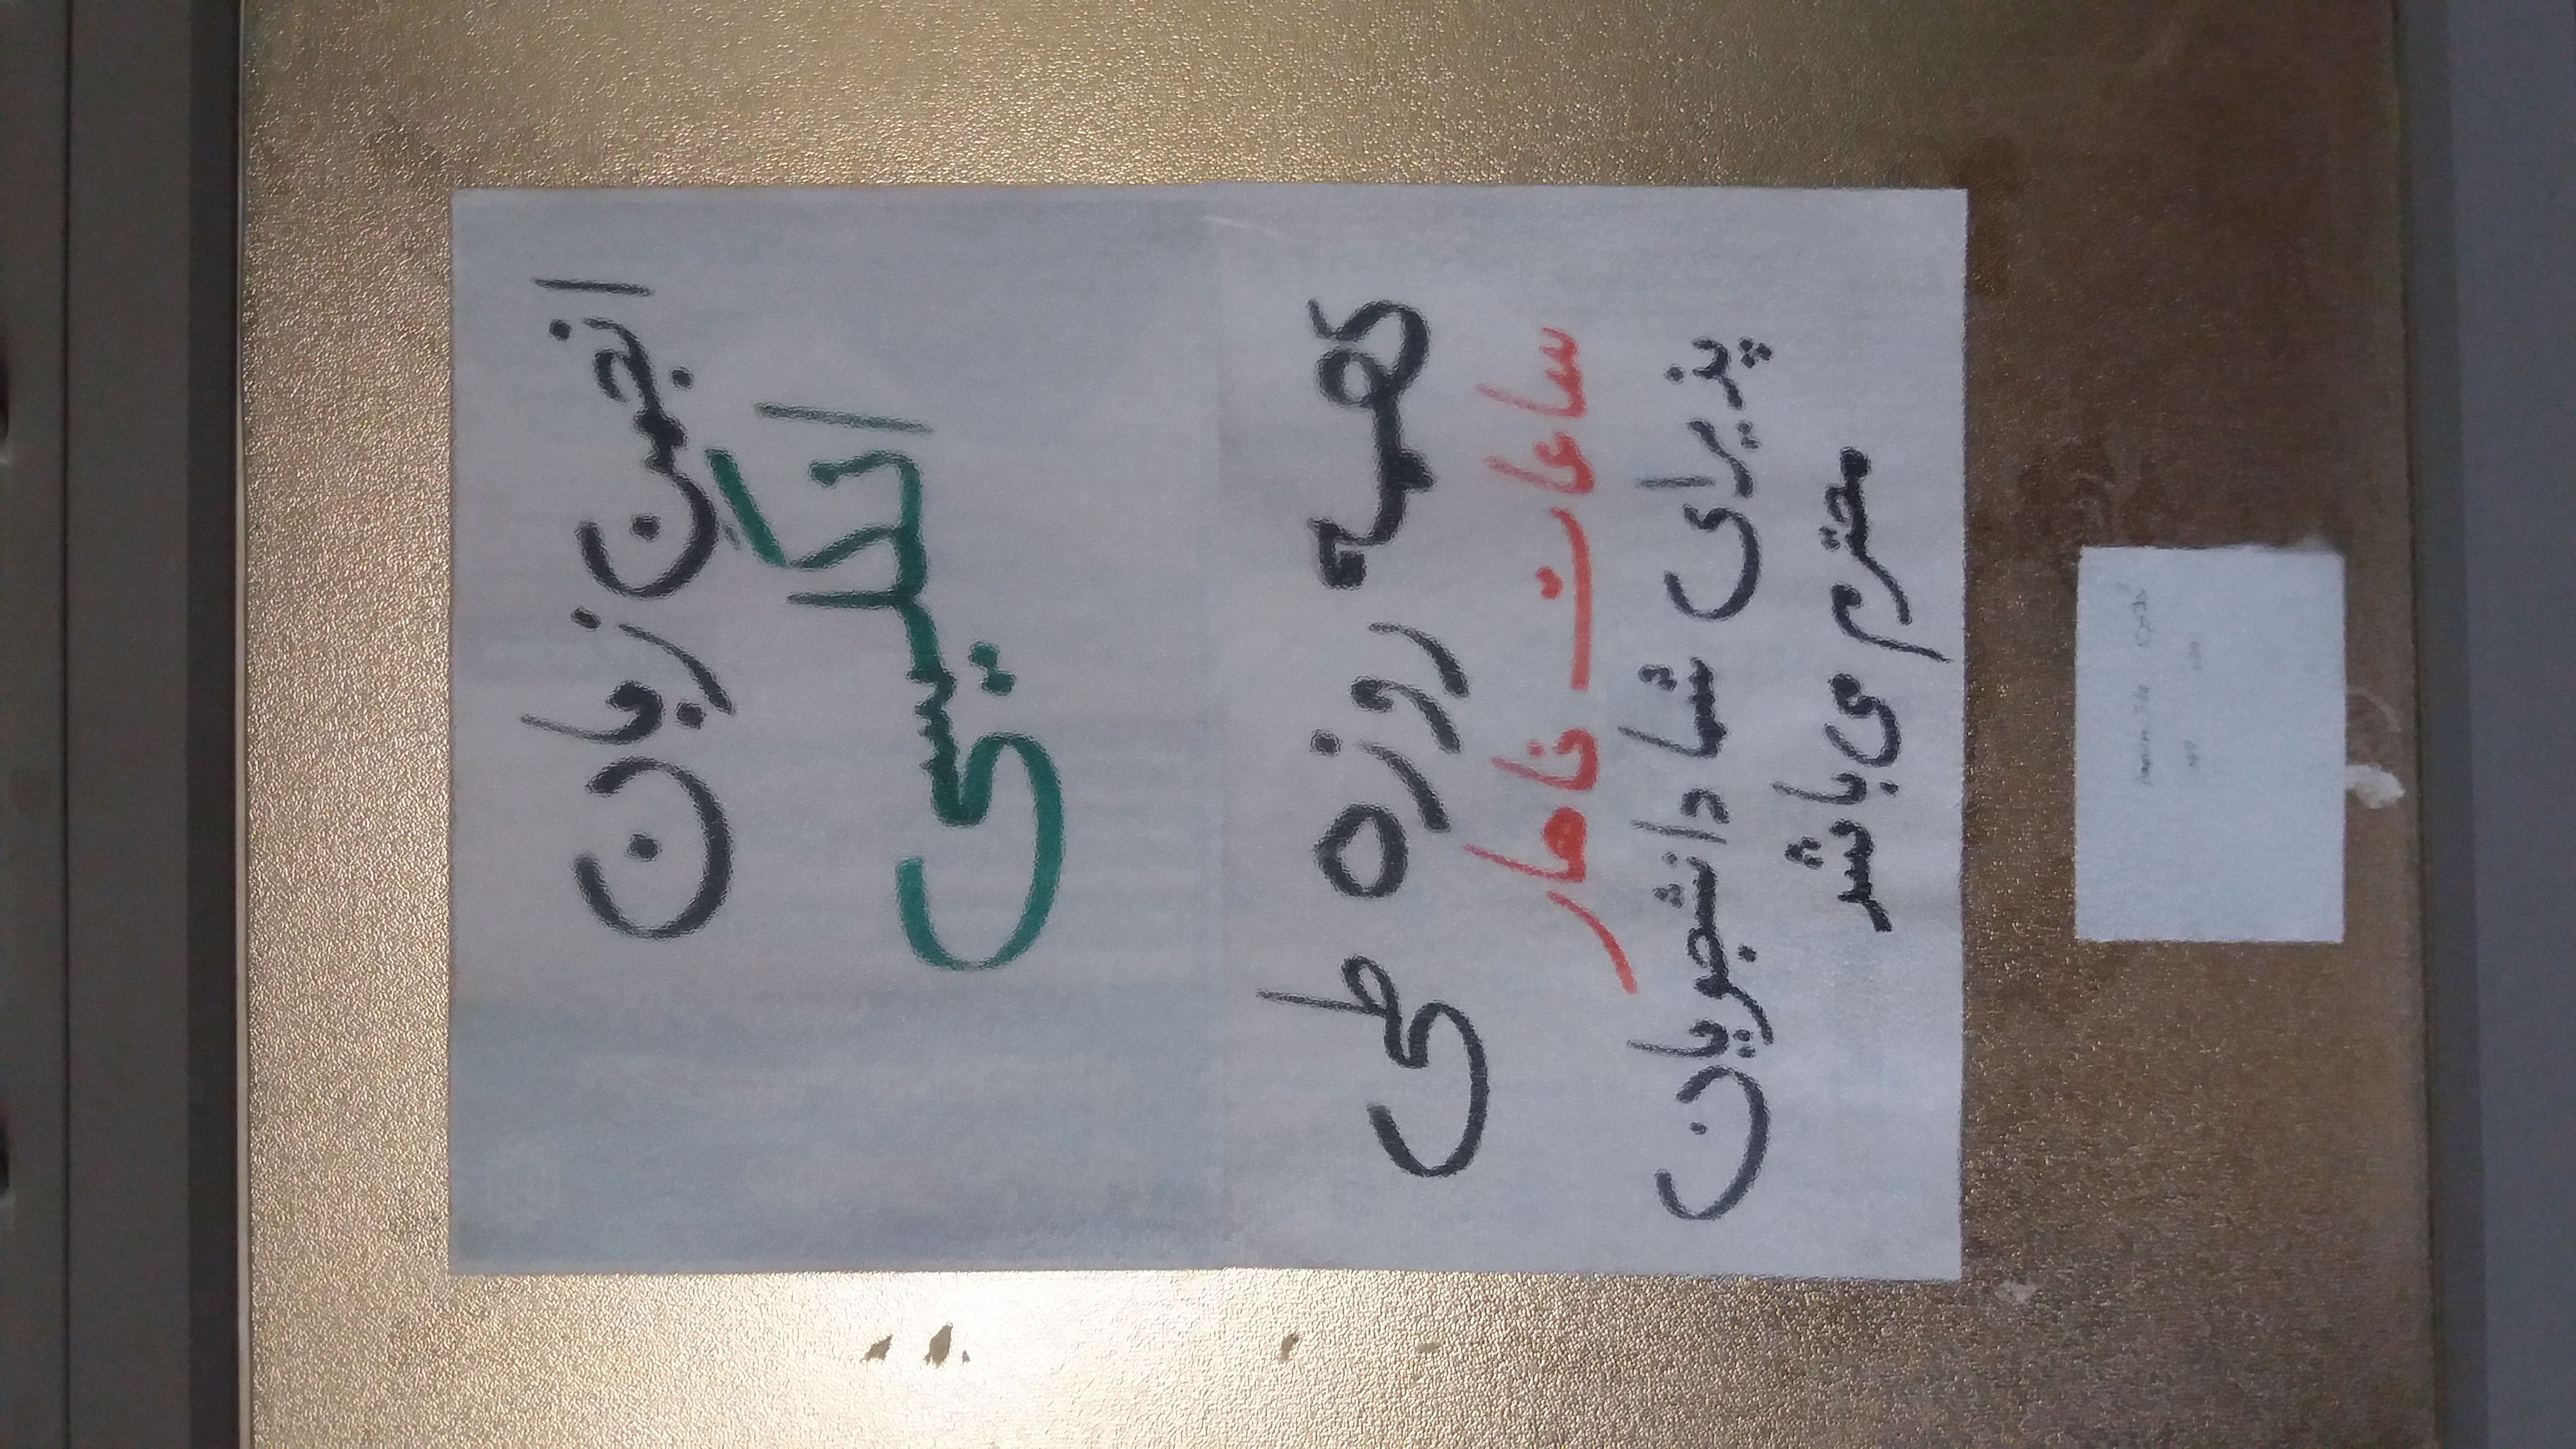 انجمن زبان
انگلیسی
همه روزه طی
ساعات ناهار
پذیرای شما دانشجویان
محترم می‌باشد